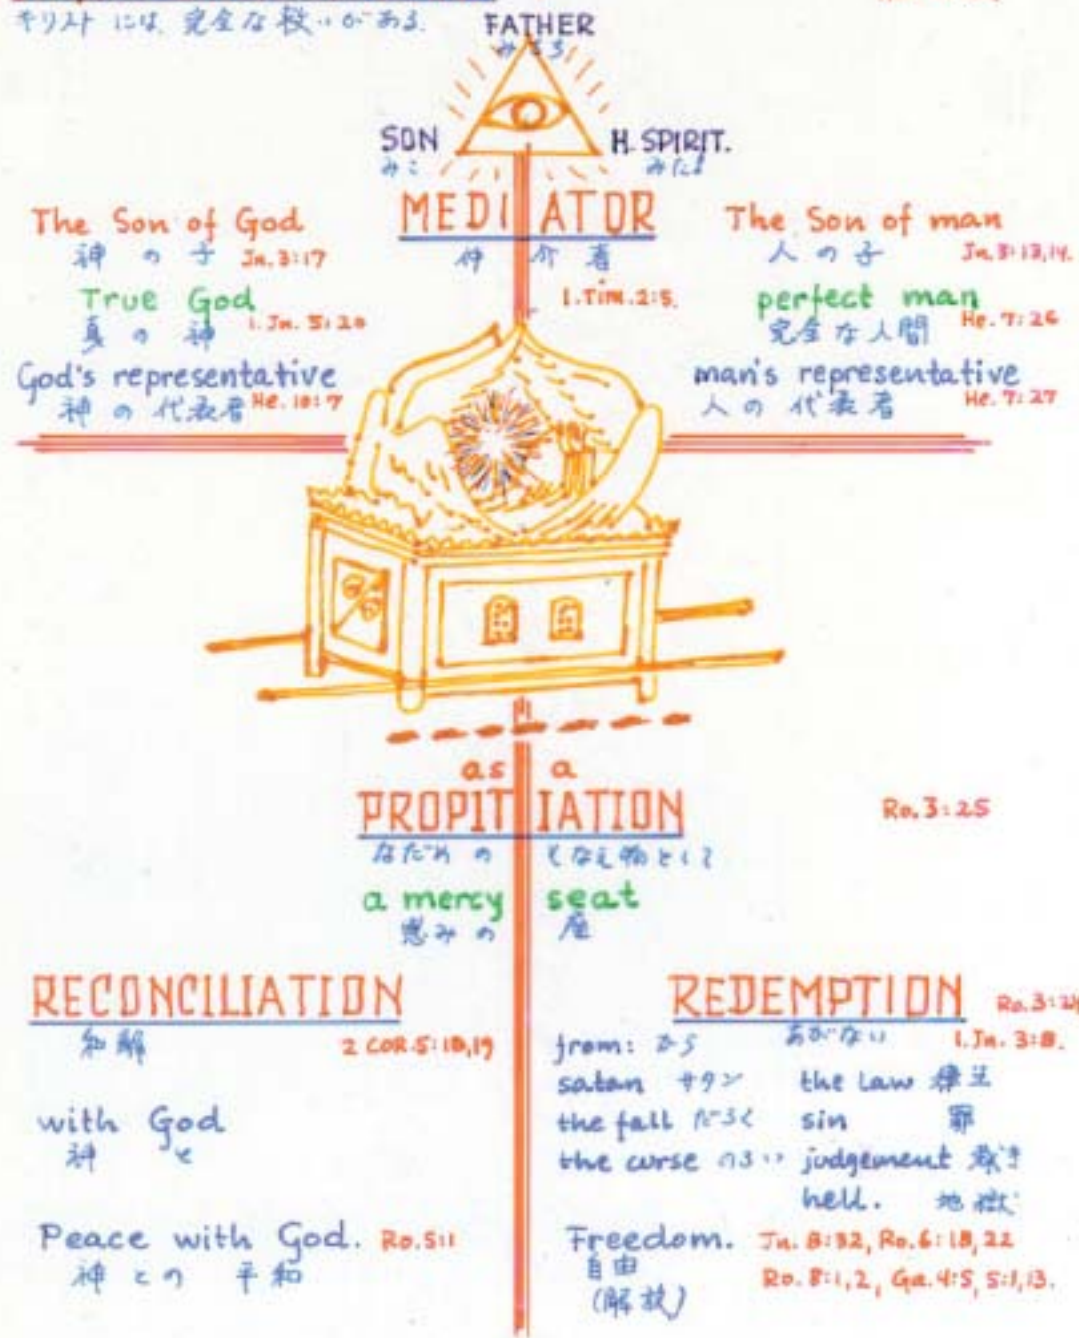 キリストには、完全な救いがある.
FATHER
みちち
SON
みこ
H. SPIRIT.
みたま
MEDIATOR
仲介者
1. Tim. 2:5.
The Son of God
神の子 Jn. 3:17
True God
真の神 1. Jn. 5:20
God's representative
神の代表者 He. 10:7
The Son of man
人の子 Jn. 3:13,14.
perfect man
完全な人間 He. 7:26
man's representative
人の代表者 He. 7:27
as a
PROPITIATION Ro. 3:25
なだめの そなえ物として
a mercy seat
恵みの座
RECONCILIATION
和解 2 COR. 5:18,19
with God
神と
Peace with God. Ro. 5:1
神との平和
REDEMPTION
from: から あがない 1. Jn. 3:8.
satan サタン the Law 律法
the fall だらく sin 罪
the curse のろい judgement 裁き
hell. 地獄
Freedom. Jn. 8:32, Ro. 6:18,22
自由 Ro. 8:1,2, Ga. 4:5, 5:1,13.
(解放)